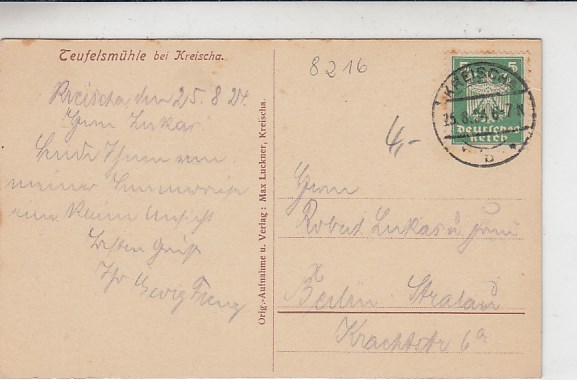 Teufelsmühle bei Kreischa.
8216
Kreischa, den 25. 8. 24.
Herrn Lukas
Sende Ihnen von
meiner
eine kleine Ansicht
Besten Gruß
Ihr Georg
Orig.-Aufnahme u. Verlag: Max Luckner, Kreischa.
5 5
KREISCHA
25.8. 6-7 N
b
Deutsches
Reich
4,-
Herrn
Robert Lukas u. Frau
Berlin Stralau
Krachtstr 6a